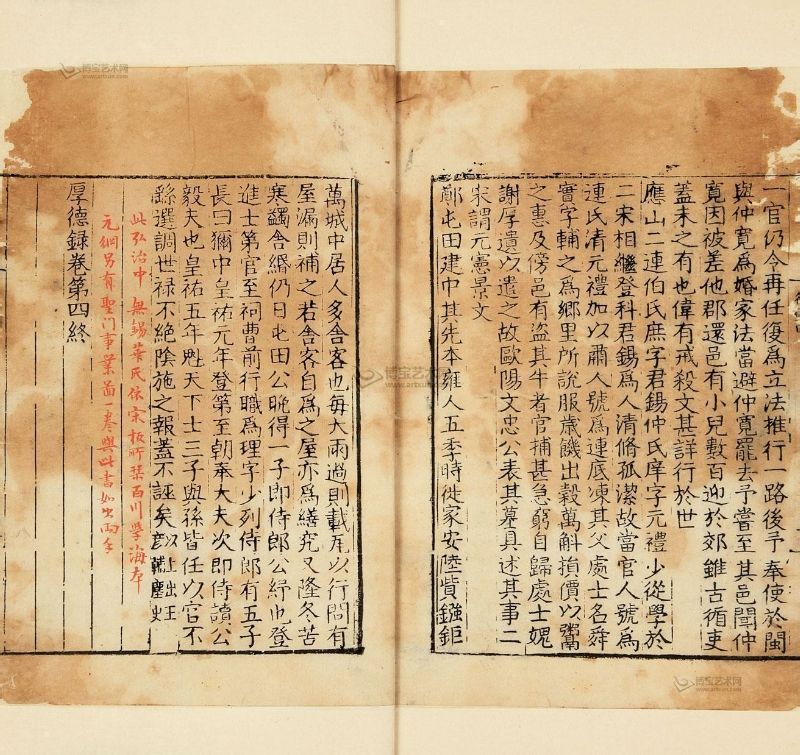 一官仍令再任復為立法推行一路後予奉使於閩
與仲寬為婚家法當避仲寬罷去予嘗至其邑聞仲
寬因被差他郡還邑有小兒數百迎於郊雖古循吏
蓋未之有也偉有戒殺文其詳行於世
應山二連伯氏庶字君錫仲氏庠字元禮少從學於
二宋相繼登科君錫為人清脩孤潔故當官人號為
連氏清元禮加以肅人號為連底凍其父處士名舜
賓字輔之為鄉里所說服歲饑出穀萬斛損價以鬻
之惠及傍邑有盜其牛者官捕甚急窮自歸處士媿
謝厚遺以遣之故歐陽文忠公表其墓具述其事二
宋謂元憲景文
鄭屯田建中其先本雍人五季時徙家安陸貲鏹鉅
萬城中居人多舍客也每大雨過則載瓦以行問有
屋漏則補之若舍客自為之屋亦為繕究又隆冬苦
寒蠲舍緡仍日屯田公晚得一子即侍郎公紓也登
進士第官至祠曹前行職為理字少列侍郎有五子
長曰獬中皇祐元年登第至朝奉大夫次即侍讀公
毅夫也皇祐五年魁天下士三子與孫皆任以官不
繇選調世祿不絕陰施之報蓋不誣矣
此弘治中無錫華氏依宋板所栞百川學海本
元綱另有聖门事業啚一卷與此書如出兩手
厚德録卷第四終
博宝艺术网
www.artxun.com
博宝艺术网
www.artxun.com
博宝艺术网
www.artxun.com